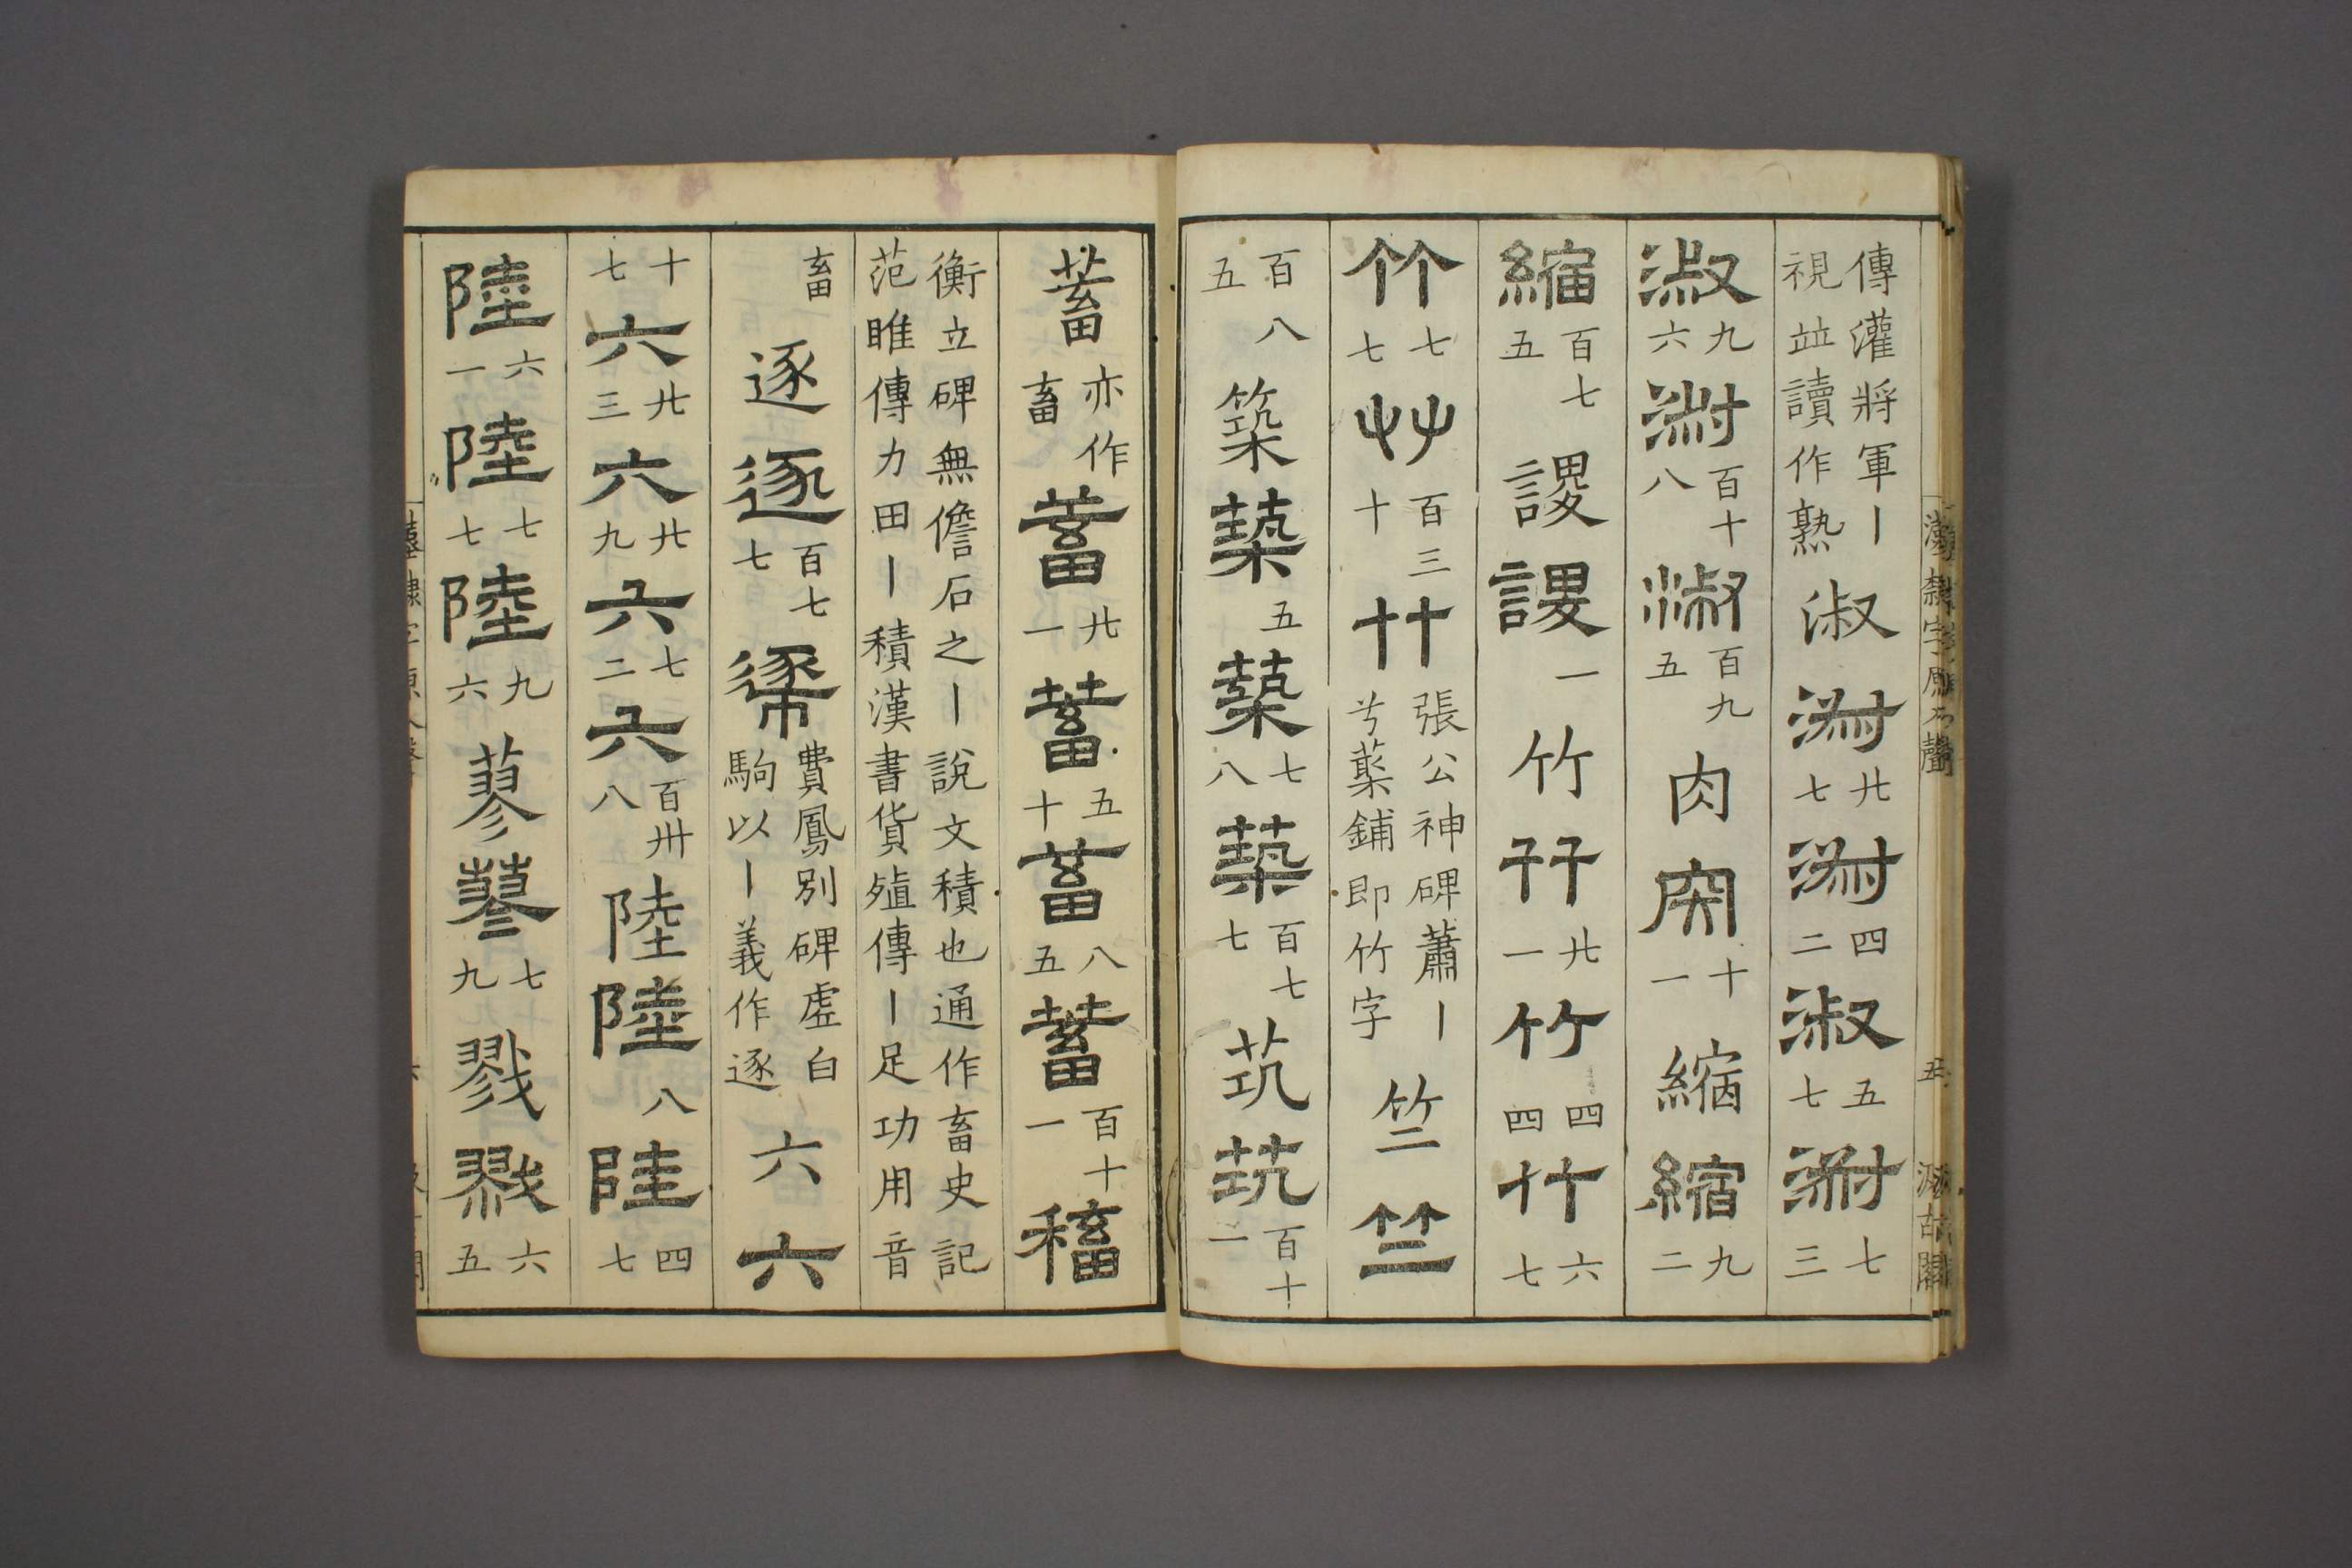 傳灌將軍丨視竝讀作熟 淑 淑 廿七 淑 四二 淑 五七 淑 七三
淑 九六 淑 百十八 淑 百九五 肉 肉 十一 縮 縮 九二
縮 百七五 謖 謖 一 竹 竹 廿一 竹 四四 竹 六七
竹 七七 竹 百三十 竹 張公神碑蕭丨兮蘂鋪即竹字 竺 竺
百八五 築 築 五 築 七八 築 百七七 茿 茿 百十一
漢隸字原入聲 五 汲古閣
蓄 亦作畜 蓄 廿一 蓄 五十 蓄 八五 蓄 百十一 稸
衡立碑無儋石之丨說文積也通作畜史記范睢傳力田丨積漢書貨殖傳丨足功用音
畜 逐 逐 百七七 逐 費鳳別碑虛白駒以丨義作逐 六 六
十七 六 廿三 六 廿九 六 七二 六 百卅八 陸 陸 八 陸 四七
陸 六一 陸 七七 陸 九六 蓼 蓼 七九 戮 戮 六五